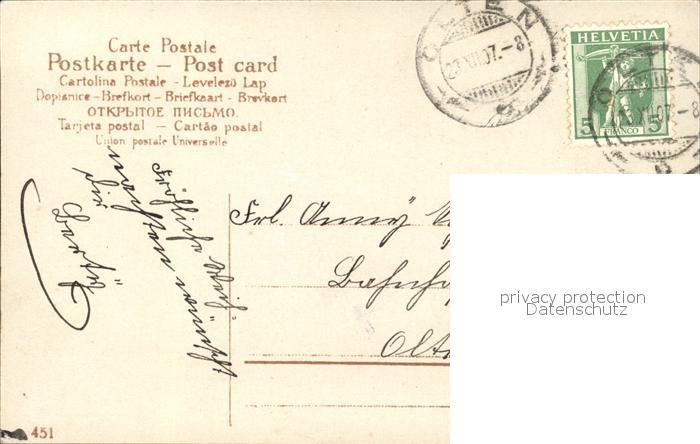 Carte Postale
Postkarte — Post card
Cartolina Postale - Levelező Lap
Dopisnice - Brefkort - Briefkaart - Brevkort
ОТКРЫТОЕ ПИСЬМО.
Tarjeta postal — Cartão postal
Union postale Universelle
OLTEN
XII.07.-8
HELVETIA
5 FRANCO 5
XII.07.-8
Fröhliche Weih-
nachten wünscht
dir
Frl. Anny
Bahnho
Olt
privacy protection
Datenschutz
451